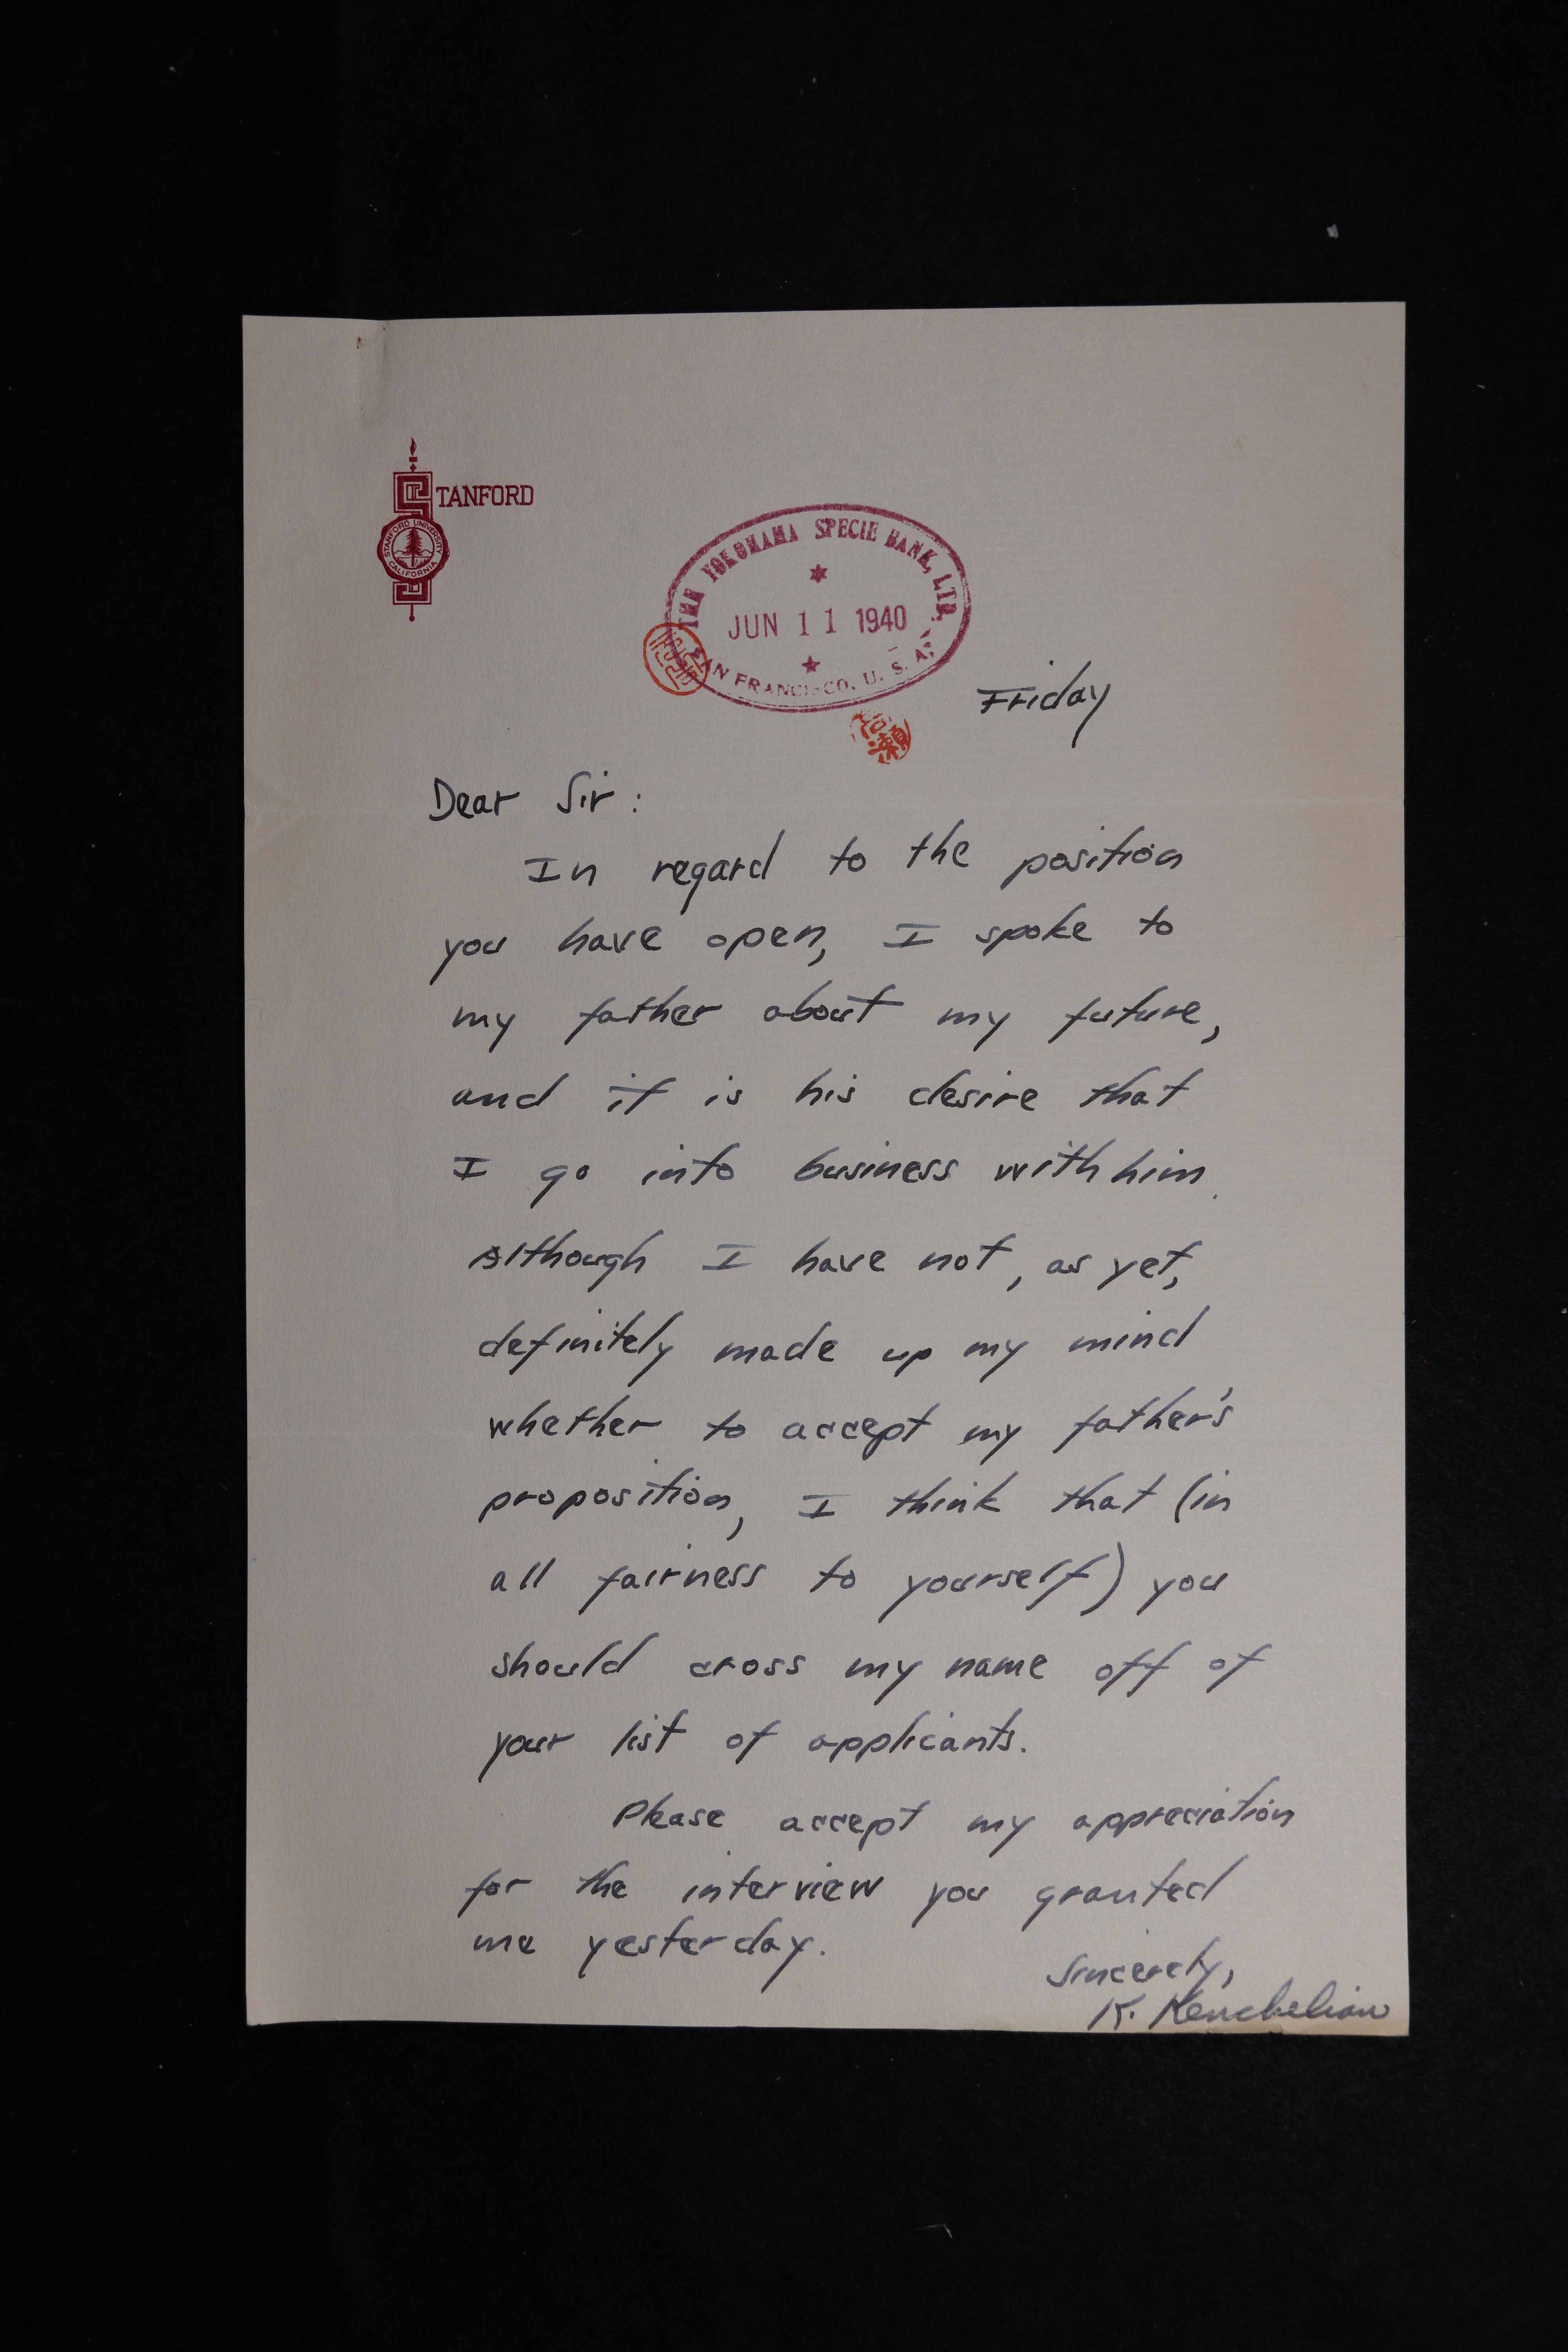 STANFORD
STANFORD UNIVERSITY
CALIFORNIA
THE YOKOHAMA SPECIE BANK, LTD.
JUN 11 1940
SAN FRANCISCO, U. S. A.
Friday
Dear Sir:
In regard to the position
you have open, I spoke to
my father about my future,
and it is his desire that
I go into business with him.
Although I have not, as yet,
definitely made up my mind
whether to accept my father's
proposition, I think that (in
all fairness to yourself) you
should cross my name off of
your list of applicants.
Please accept my appreciation
for the interview you granted
me yesterday.
Sincerely,
K. Kenchelian